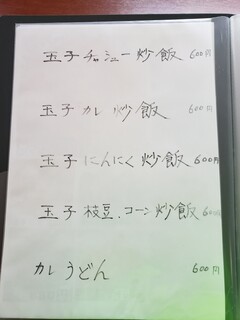 玉子 チャシュー 炒飯 600円
玉子 カレ 炒飯 600円
玉子 にんにく 炒飯 600円
玉子 枝豆.コーン 炒飯 600円
カレ うどん 600円